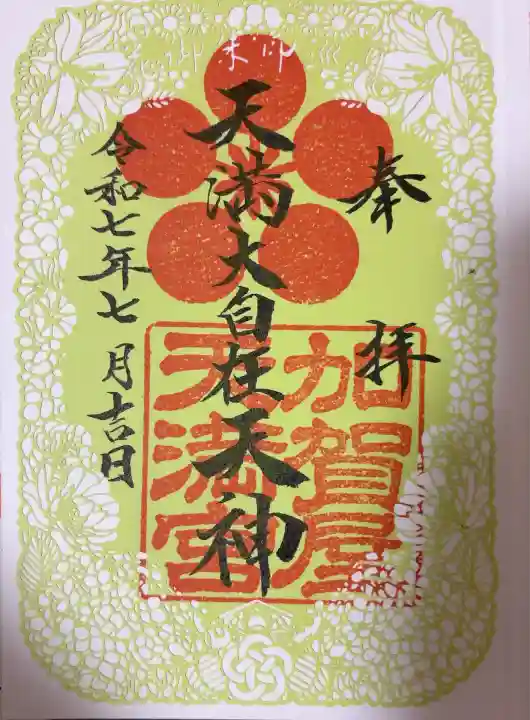 奉拝
天満大自在天神
加賀屋
天満宮
令和七年七月吉日